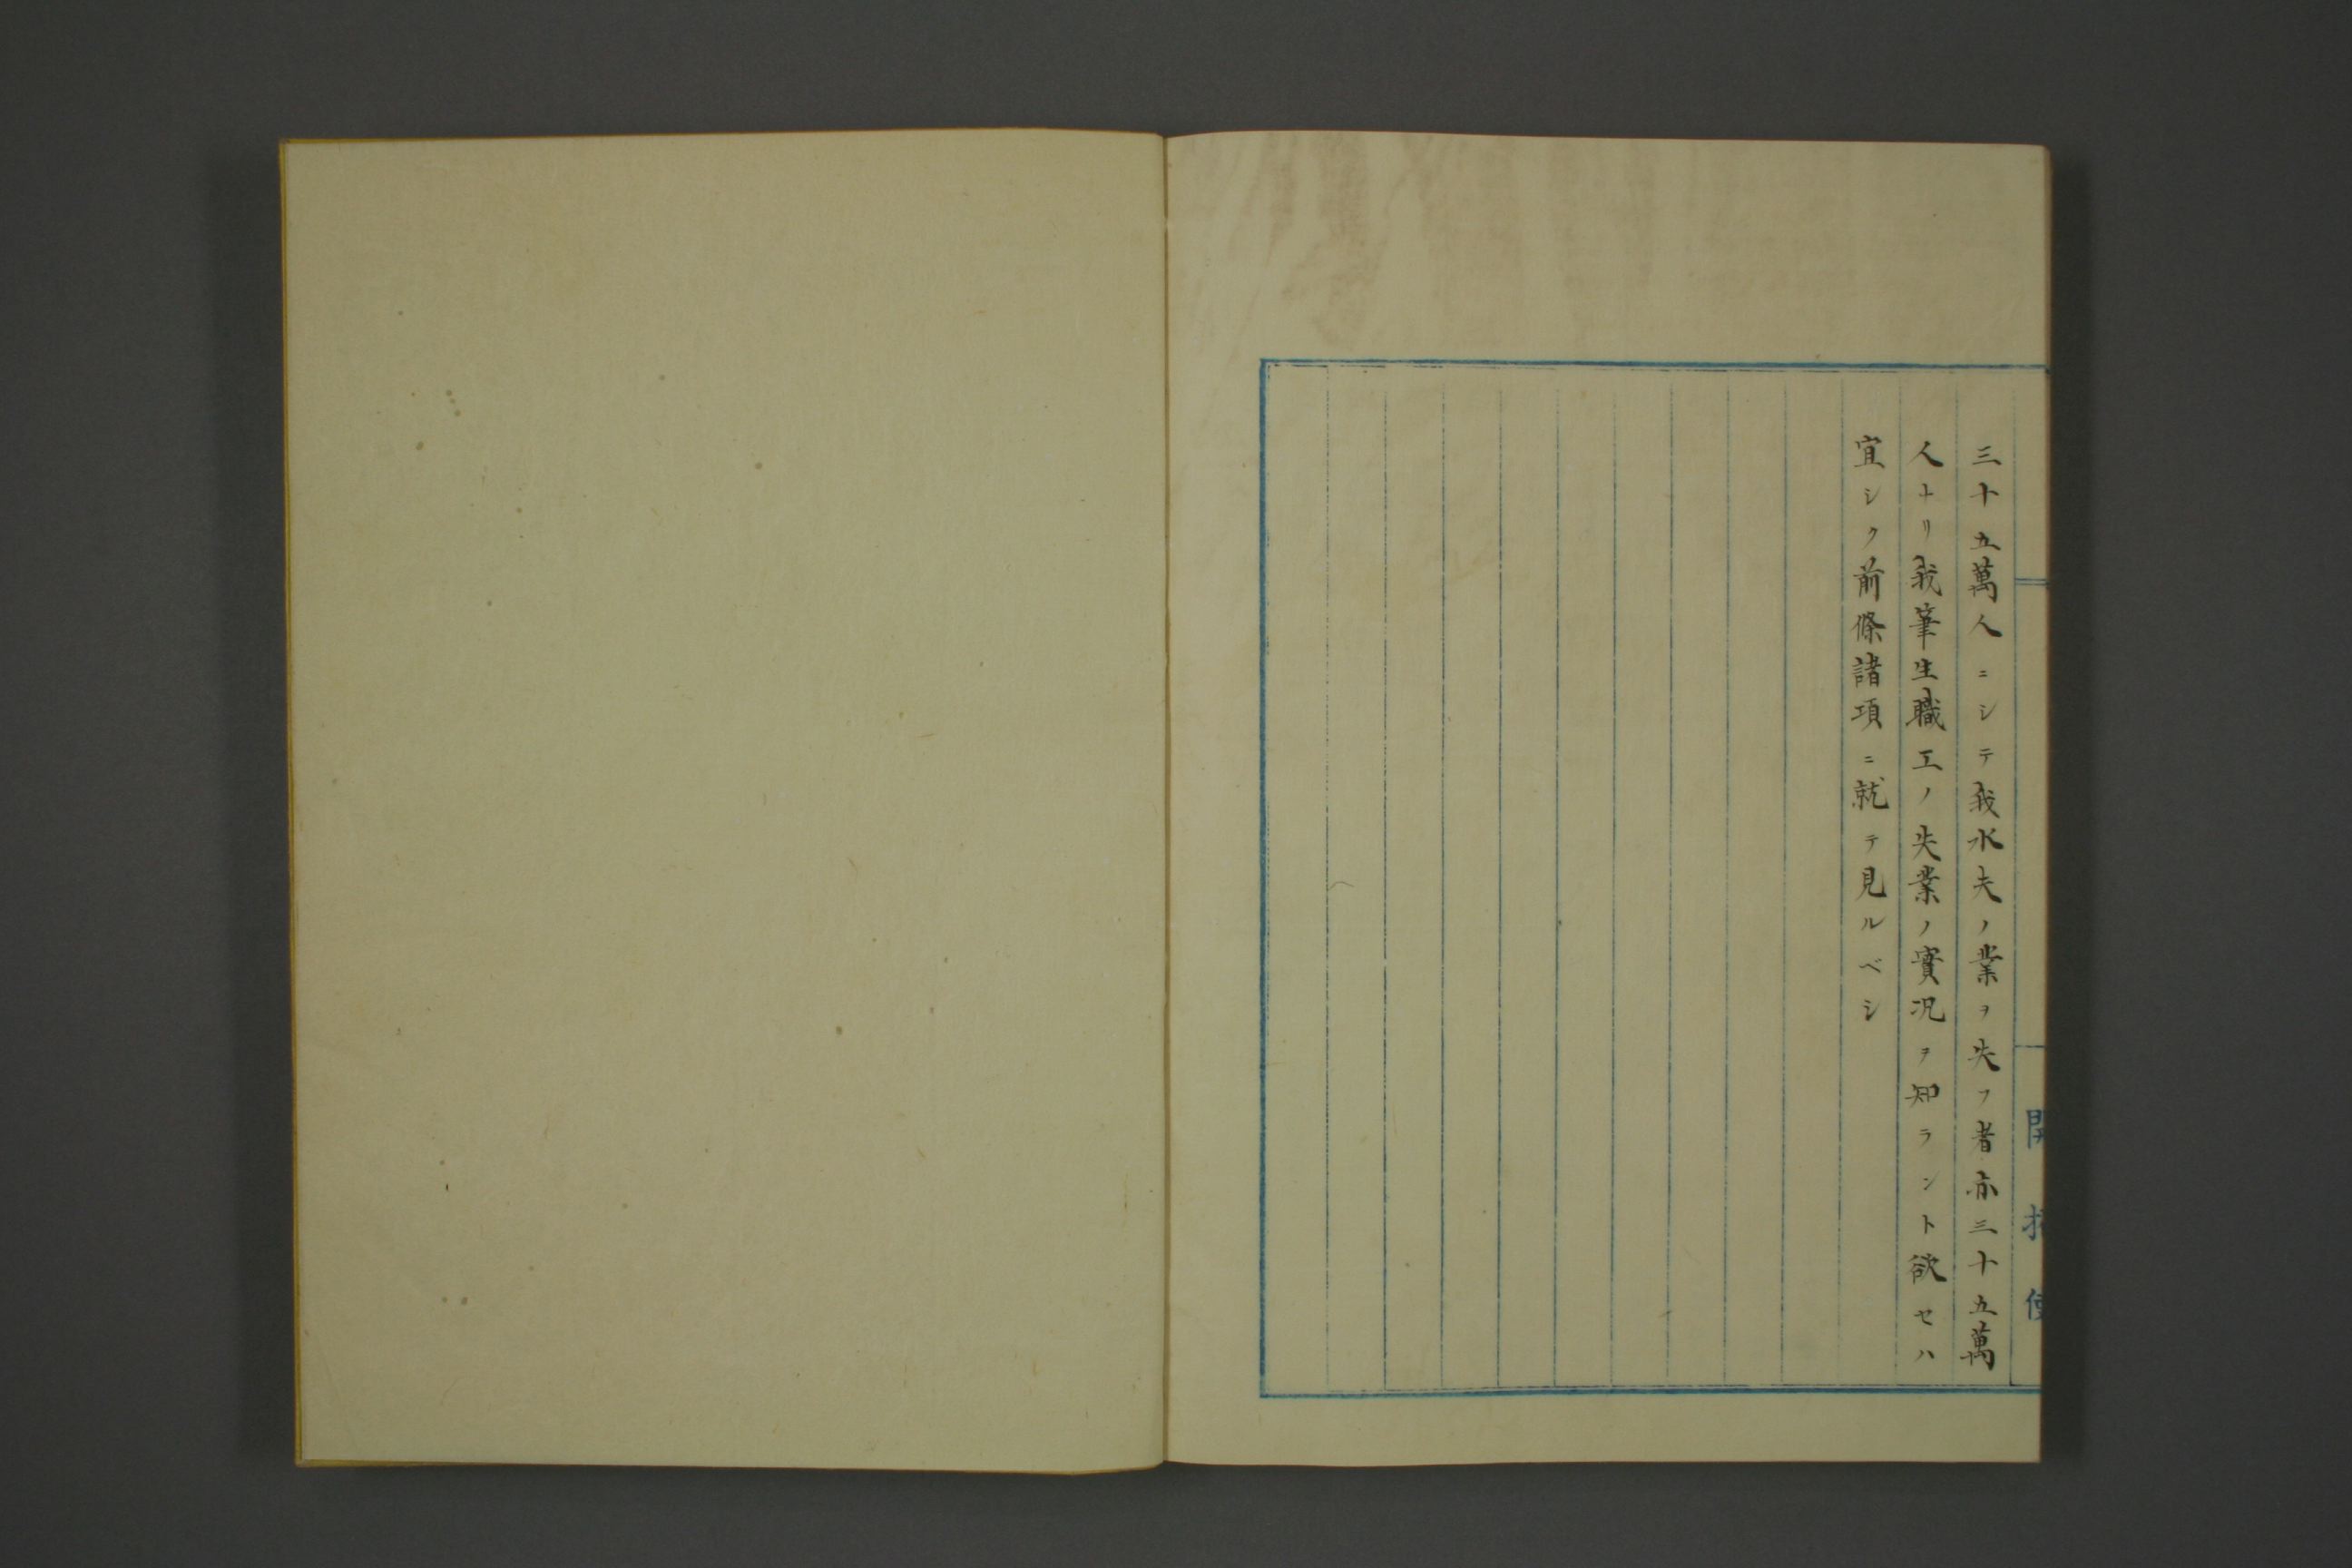 三十五萬人ニシテ我水夫ノ業ヲ失フ者亦三十五萬
人ナリ我筆生職工ノ失業ノ實况ヲ知ラント欲セハ
宜シク前條諸項ニ就テ見ルベシ
開拓使